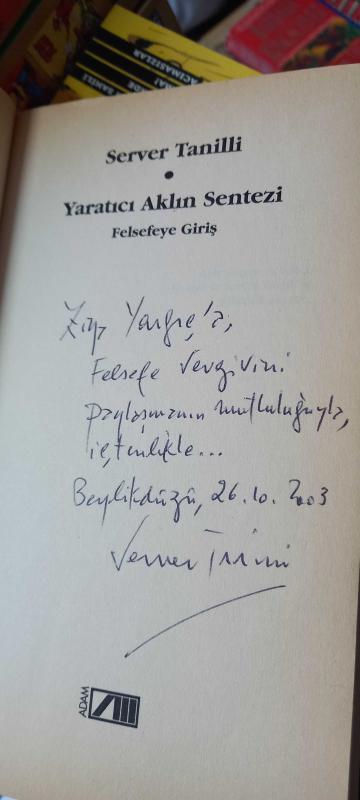 ACIMASIZLAR
Server Tanilli
•
Yaratıcı Aklın Sentezi
Felsefeye Giriş
Felsefe sevgisini
paylaşmanın mutluluğuyla,
içtenlikle...
Beylikdüzü, 26.10.2003
Server Tanilli
ADAM